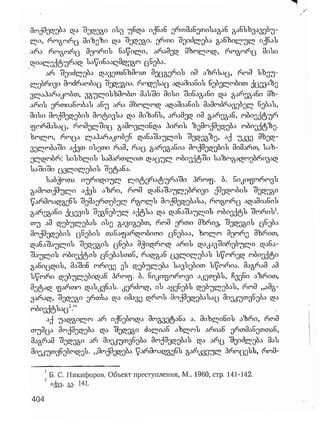 მოქმედება და შედეგი ისე უნდა იქნან ერთმანეთისაგან განსხვავებუ-
ლი, როგორც მიზეზი და შედეგი. ერთი შეიძლება განხილულ იქნას
არა როგორც მეორის ნაწილი, არამედ მხოლოდ, როგორც მისი
დიალექტურად საწინააღმდეგო ცნება.
არ შეიძლება დავეთანხმოთ მეცგერის იმ აზრსაც, რომ სხეუ-
ლებრივი მოძრაობაც შედეგია. როდესაც ადამიანის ნებელობით ქცევაზე
ვლაპარაკობთ, ვგულისხმობთ მასში მისი შინაგანი და გარეგანი მხ-
არის ერთიანობას ანუ არა მხოლოდ ადამიანის მამოძრავებელ ნებას,
მისი მოქმედების მოტივსა და მიზანს, არამედ იმ გარეგან, ობიექტურ
ფორმასაც, რომელშიც გამოვლინდა პირის ზემოქმედება ობიექტზე.
ხოლო, როცა ლაპარაკობენ დანაშაულის შედეგზე, აქ უკვე მხედ-
ველობაში აქვთ ისეთი რამ, რაც გარეგანია მოქმედების მიმართ, სახ-
ელდობრ: სისხლის სამართლით დაცულ ობიექტში საზოგადოებრივად
საშიში ცვლილების შეტანა.
საბჭოთა იურიდიულ ლიტერატურაში პროფ. ბ. ნიკიფოროვს
გამოთქმული აქვს აზრი, რომ დანაშაულებრივი ქმედობის შედეგი
წარმოადგენს შემაერთებელ რგოლს მოქმედებასა, როგორც ადამიანის
გარეგანი ქცევის შეგნებულ აქტსა და დანაშაულის ობიექტს შორის¹.
თუ ამ დებულებას ისე გავიგებთ, რომ ერთი მხრივ, შედეგის ცნება
მოქმედების ცნების თანაფარდობითი ცნებაა, ხოლო მეორე მხრით,
დანაშაულის შედეგის ცნება მჭიდროდ არის დაკავშირებული დანა-
შაულის ობიექტის ცნებასთან, რადგან ცვლილებას სწორედ ობიექტი
განიცდის, მაშინ ორივე ეს დებულება სავსებით სწორია. მაგრამ ამ
სწორი დებულებიდან პროფ. ბ. ნიკიფოროვი აკეთებს, ჩვენი აზრით,
მეტად ფართო დასკვნას. კერძოდ, ის აყენებს დებულებას, რომ „ამგ-
ვარად, შედეგი ერთსა და იმავე დროს მოქმედებასაც მიეკუთვნება და
ობიექტსაც²."
აქ უადგილო არ იქნებოდა მოგვეტანა ა. მიხლინის აზრი, რომ
თუმცა მოქმედება და შედეგი ძალიან ახლოს არიან ერთმანეთთან,
მაგრამ შედეგი არ მიეკუთვნება მოქმედებას და არც შეიძლება მას
მიეკუთვნებოდეს. „მოქმედება წარმოადგენს გარკვეულ პროცესს, რომ-
¹ Б. С. Никифоров, Объект преступления, М., 1960, стр. 141-142.
² იქვე, გვ. 141.
404